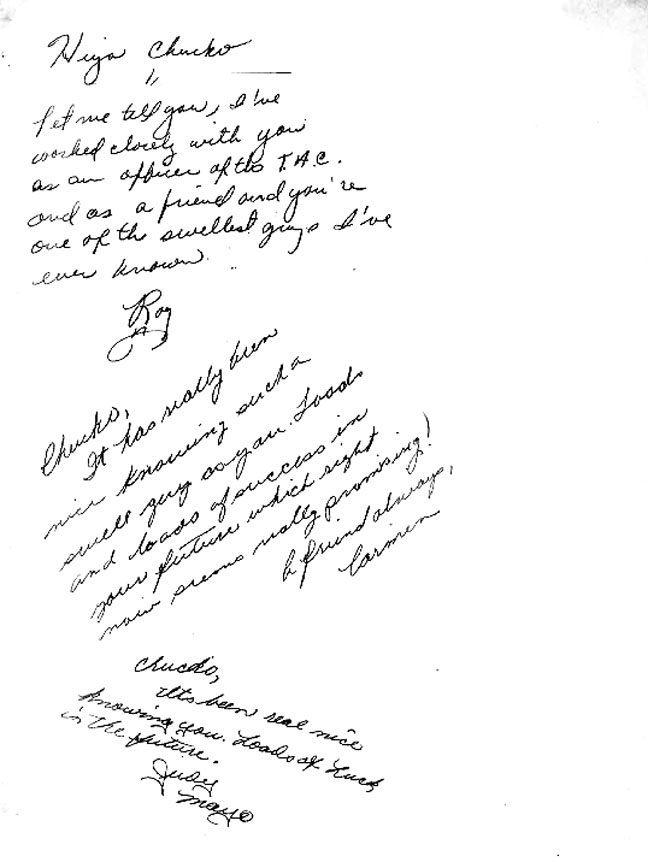 Hiya Chucko
Let me tell you, I've
worked closely with you
as an officer of the T.A.C.
and as a friend and you're
one of the swellest guys I've
ever known.
Ray
Chucko,
It has really been
nice knowing such a
swell guy as you. Loads
and loads of success in
your future which right
now seems really promising!
A friend always,
Carmen
Chucko,
It's been real nice
knowing you. Loads of luck
in the future.
Judy
Mayo